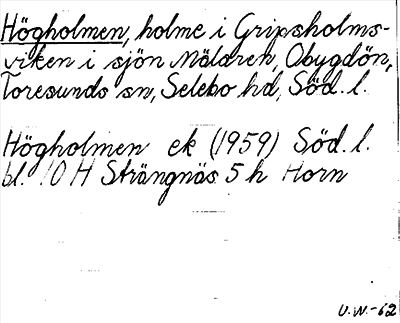 Högholmen, holme i Gripsholms-
viken i sjön Mälaren, Obygdön,
Toresunds sn, Selebo hd, Söd. l.
Högholmen ek (1959) Söd. l.
bl. 10 H Strängnäs 5 h Horn
U.W.-62